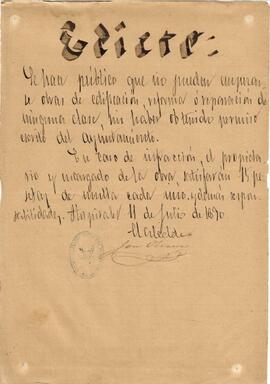 Edicto:
Se hace público que no pueden empezar-
se obras de edificación, reforma ó reparación de
ninguna clase, sin haber obtenido permiso
escrito del Ayuntamiento.
En caso de infracción, el propieta-
rio y encargado de la obra, satisfarán 15 pe
setas de multa cada uno, y demás respon-
sabilidades. Hospitalet 11 de Julio de 1890.
El Alcalde